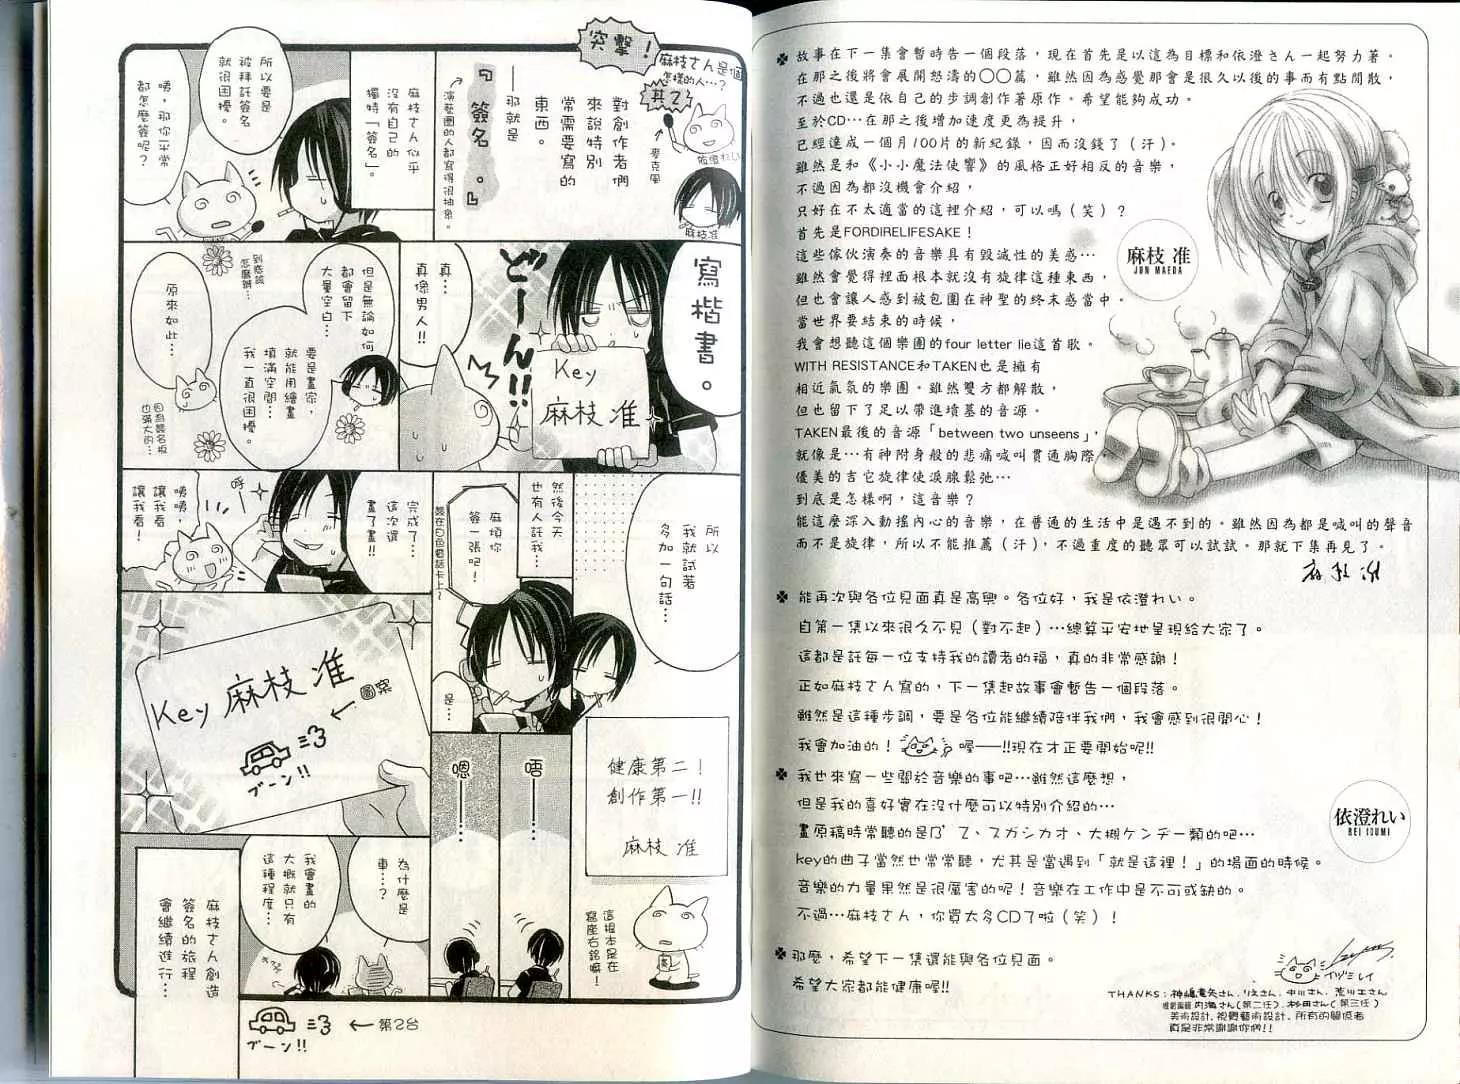 突擊！
麻枝さん是個
怎樣的人…？
其2
依澄れい
麥克風
麻枝准
對創作者們
來說特別
常需要寫的
東西。
──那就是
『簽名。』
演藝圈的人都寫得很抽象。
麻枝さん似乎
沒有自己的
獨特「簽名」。
所以要是
被拜託簽名
就很困擾。
咦，那你平常
都怎麼簽呢？
寫楷書。
Key
麻枝 准
どーん!!
真…
真像男人!!
但是無論如何
都會留下
大量空白…
到底該
怎麼辦…
要是畫家，
就能用繪畫
填滿空間…
我一直很困擾。
原來如此…
因為簽名板
也滿大的…
所以
我就試著
多加一句話…
健康第二！
創作第一!!
麻枝 准
這根本是在
寫座右銘嘛！
唔…………
嗯…………
然後今天
也有人託我…
麻煩你
簽一張吧！
簽在白色電話卡上～
是…
完成了…
這次還
畫了畫!!
呼…
咦咦，
讓我看！
讓我看！
Key 麻枝 准
←圖案
ブーン!!
為什麼是
車…？
我會畫的
大概就只有
這種程度…
麻枝さん創造
簽名的旅程
會繼續進行…
←第2台
ブーン!!
故事在下一集會暫時告一個段落，現在首先是以這為目標和依澄さん一起努力著。
在那之後將會展開怒濤的〇〇篇，雖然因為感覺那會是很久以後的事而有點閒散，
不過也還是依自己的步調創作著原作。希望能夠成功。
至於CD…在那之後增加速度更為提升，
已經達成一個月100片的新紀錄，因而沒錢了（汗）。
雖然是和《小小魔法使響》的風格正好相反的音樂，
不過因為都沒機會介紹，
只好在不太適當的這裡介紹，可以嗎（笑）？
首先是FORDIRELIFESAKE！
這些傢伙演奏的音樂具有毀滅性的美感…
雖然會覺得裡面根本就沒有旋律這種東西，
但也會讓人感到被包圍在神聖的終末感當中。
當世界要結束的時候，
我會想聽這個樂團的four letter lie這首歌。
WITH RESISTANCE和TAKEN也是擁有
相近氣氛的樂團。雖然雙方都解散，
但也留下了足以帶進墳墓的音源。
TAKEN最後的音源「between two unseens」，
就像是…有神附身般的悲痛喊叫貫通胸際，
優美的吉它旋律使淚腺鬆弛…
到底是怎樣啊，這音樂？
能這麼深入動搖內心的音樂，在普通的生活中是遇不到的。雖然因為都是喊叫的聲音
而不是旋律，所以不能推薦（汗），不過重度的聽眾可以試試。那就下集再見了。
麻枝准
麻枝 准
JUN MAEDA
能再次與各位見面真是高興。各位好，我是依澄れい。
自第一集以來很久不見（對不起）…總算平安地呈現給大家了。
這都是託每一位支持我的讀者的福，真的非常感謝！
正如麻枝さん寫的，下一集起故事會暫告一個段落。
雖然是這種步調，要是各位能繼續陪伴我們，我會感到很開心！
我會加油的！喔──!!現在才正要開始呢!!
我也來寫一些關於音樂的事吧…雖然這麼想，
但是我的喜好實在沒什麼可以特別介紹的…
畫原稿時常聽的是B'z、スガシカオ、大槻ケンヂ一類的吧…
key的曲子當然也常常聽，尤其是當遇到「就是這裡！」的場面的時候。
音樂的力量果然是很厲害的呢！音樂在工作中是不可或缺的。
不過…麻枝さん，你買太多CD了啦（笑）！
依澄れい
REI IZUMI
那麼，希望下一集還能與各位見面。
希望大家都能健康喔!!
イヅミレイ
美術設計、視覺藝術設計、所有的關係者
真是非常謝謝你們!!